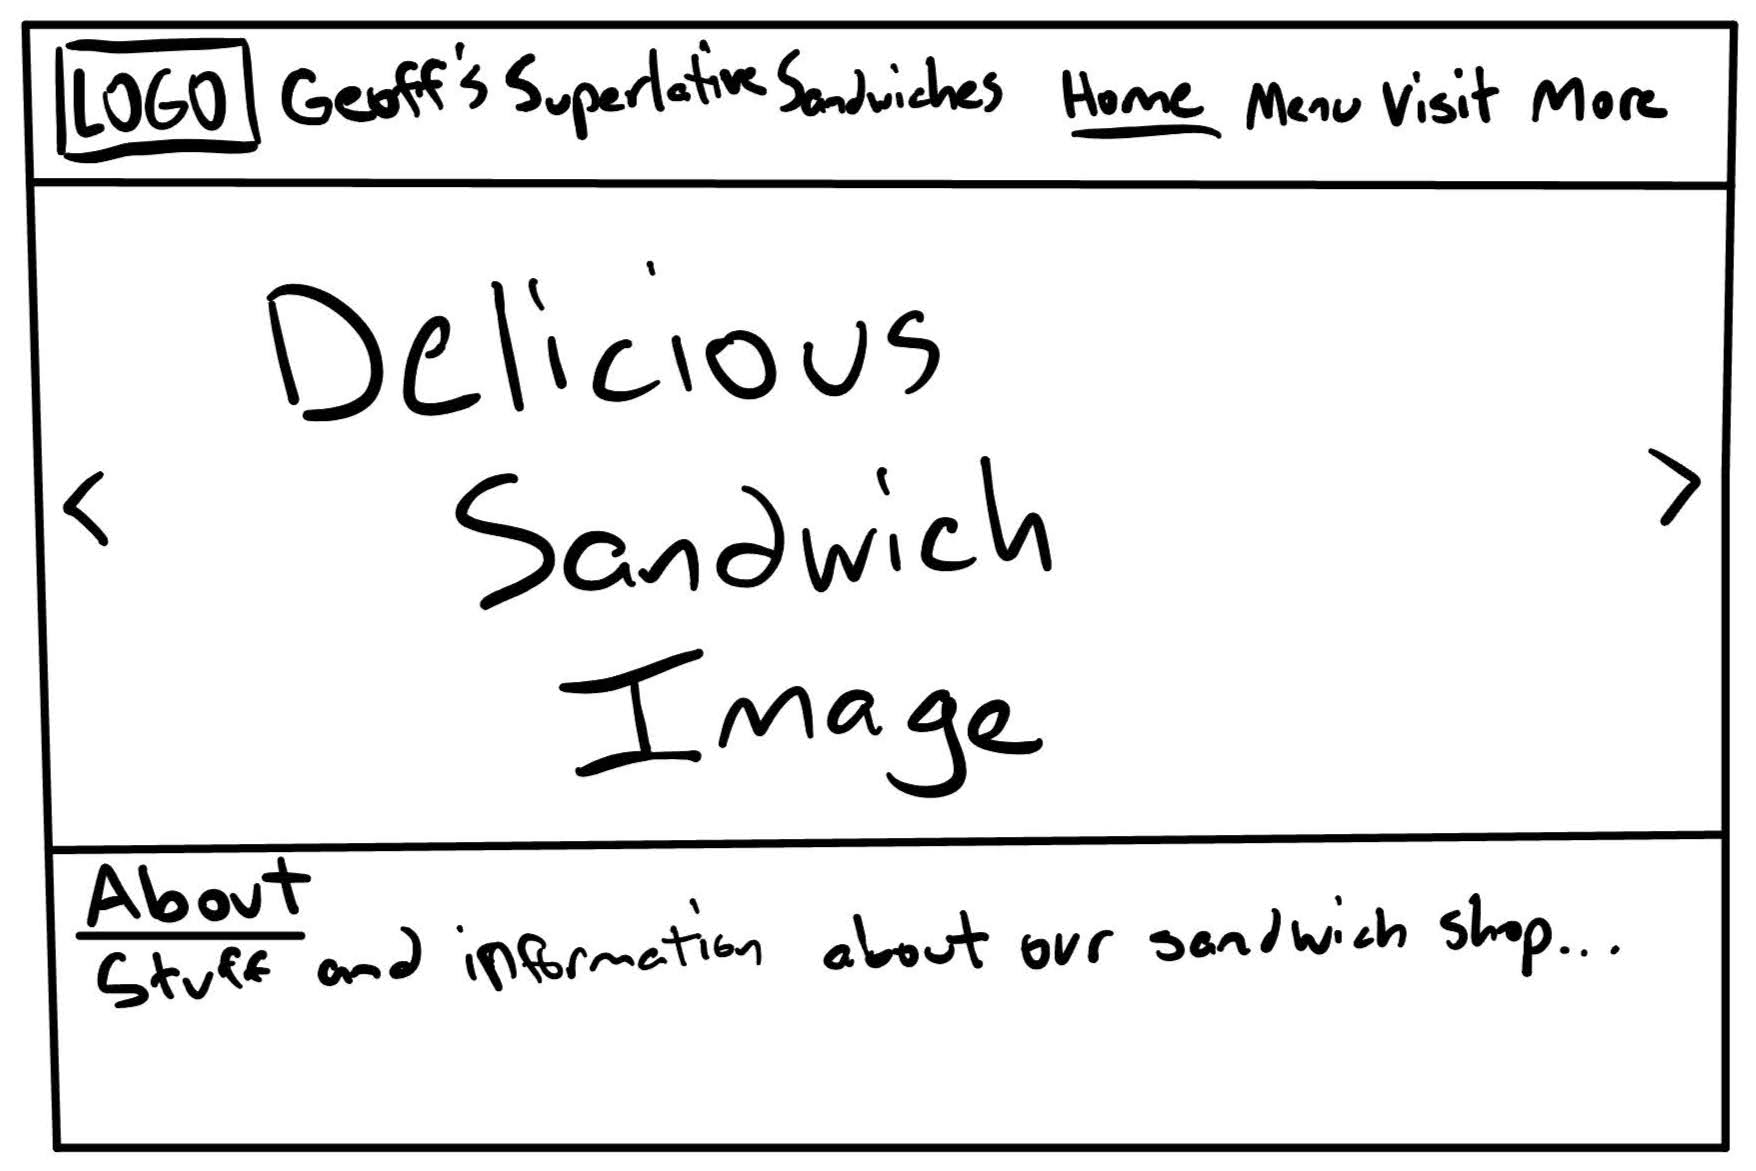 LOGO Geoff's Superlative Sandwiches Home Menu Visit More
Delicious
< >
Sandwich
Image
About
Stuff and information about our sandwich shop...